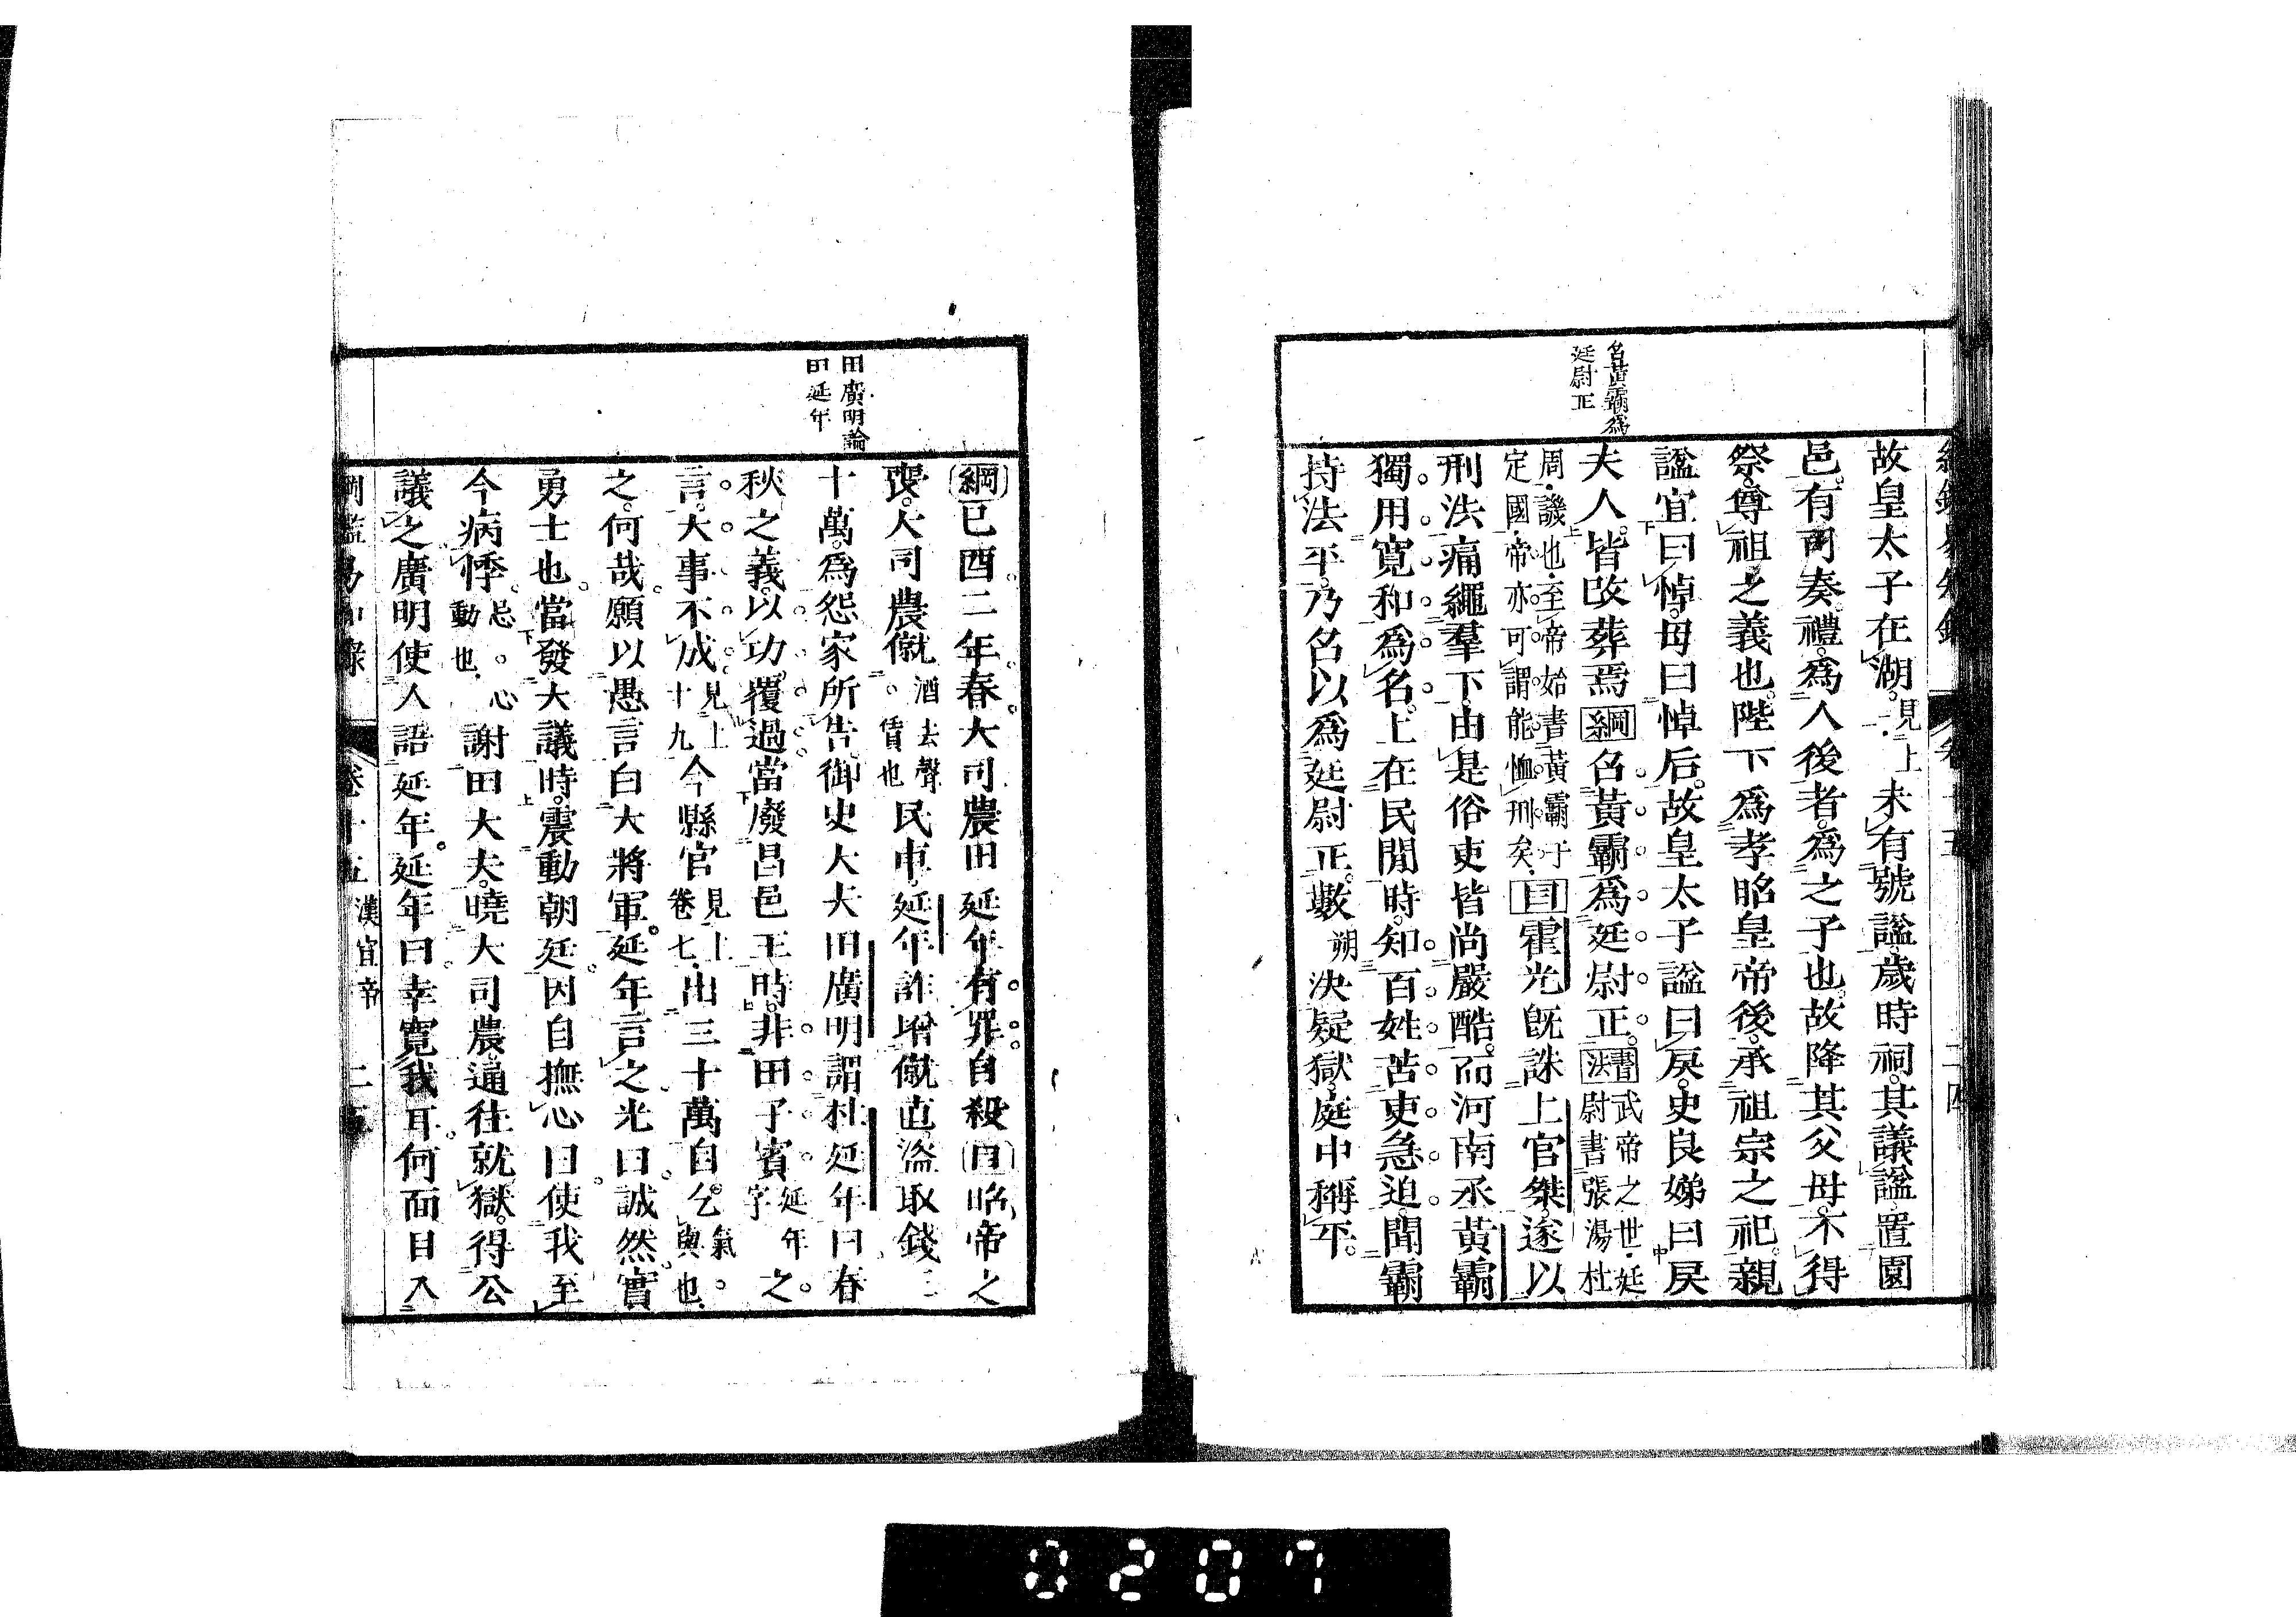 故皇太子在湖見上未有號諡歲時祠其議諡置園
邑有司奏禮爲人後者爲之子也故降其父母不得
祭尊祖之義也陛下爲孝昭皇帝後承祖宗之祀親
諡宜曰悼母曰悼后故皇太子諡曰戾史良娣曰戾
夫人皆改葬焉綱召黃霸爲廷尉正書法武帝之世延尉書張湯杜
周譏也至帝始書黃霸于定國帝亦可謂能恤刑矣目霍光既誅上官桀遂以
刑法痛繩羣下由是俗吏皆尚嚴酷而河南丞黃霸
獨用寬和爲名上在民間時知百姓苦吏急迫聞霸
持法平乃召以爲廷尉正數朔決疑獄庭中稱平
召黃霸爲
廷尉正
綱己酉二年春大司農田延年有罪自殺目昭帝之
喪大司農僦酒去聲賃也民車延年詐增僦直盜取錢三
十萬爲怨家所告御史大夫田廣明謂杜延年曰春
秋之義以功覆過當廢昌邑王時非田子賓延年字之
言大事不成見上十九今縣官見上卷七出三十萬自乞氣與也
之何哉願以愚言白大將軍延年言之光曰誠然實
勇士也當發大議時震動朝廷因自撫心曰使我至
今病悸忌心動也謝田大夫曉大司農逼往就獄得公
議之廣明使人語延年延年曰幸寬我耳何面目入
田廣明論
田延年
綱鑑易知錄 卷十五 漢宣帝 二五